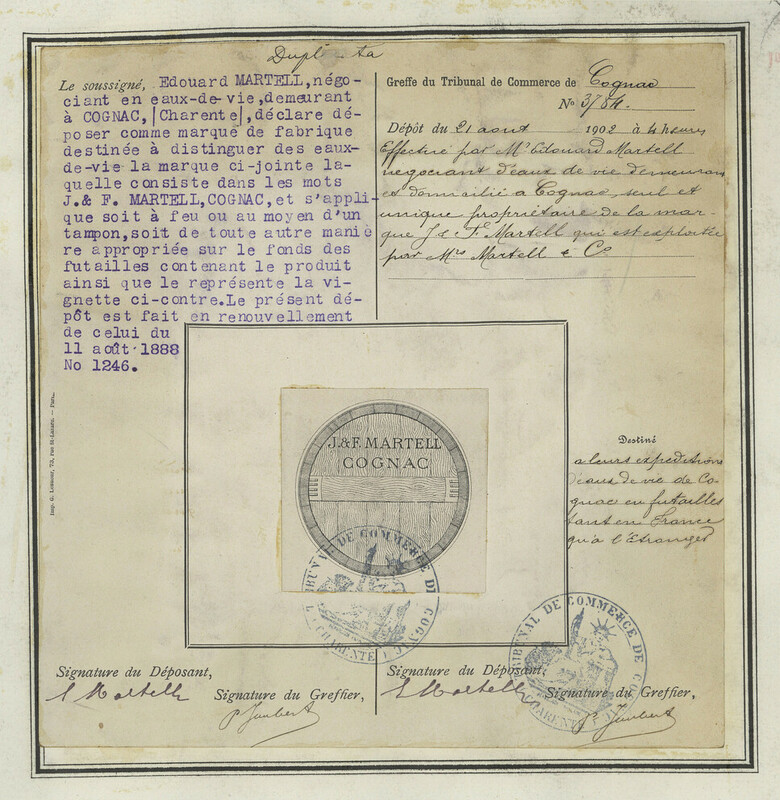 Dupl ta
Le soussigné, Edouard MARTELL,négo-
ciant en eaux-de-vie,demeurant
à COGNAC,|Charente|,déclare dé-
poser comme marque de fabrique
destinée à distinguer des eaux-
de-vie la marque ci-jointe la-
quelle consiste dans les mots
J.& F. MARTELL,COGNAC,et s'appli-
que soit à feu ou au moyen d'un
tampon,soit de toute autre maniè
re appropriée sur le fonds des
futailles contenant le produit
ainsi que le représente la vi-
gnette ci-contre.Le présent dé-
pôt est fait en renouvellement
de celui du
11 août 1888
No 1246.
Greffe du Tribunal de Commerce de Cognac
No 3784.
Dépôt du 21 aout 1902 à 4 heures
Effectué par Mr Edouard Martell
négociant d'eaux de vie demeurant
et domicilié à Cognac, seul et
unique propriétaire de la mar-
que J & F. Martell qui est exploitée
par Mrs Martell & Co
J.&F. MARTELL
COGNAC
Destiné
a leurs expeditions
d'eaux de vie de Co-
gnac en futailles
tant en France
qu'à l'Etranger
Imp. G. Lesueur, 73, rue St-Lazare. — Paris.
TRIBUNAL DE COMMERCE DE COGNAC
CHARENTE
TRIBUNAL DE COMMERCE DE COGNAC
CHARENTE
Signature du Déposant,
E Martell
Signature du Greffier,
P. Jaubert
Signature du Déposant,
E Martell
Signature du Greffier,
P. Jaubert